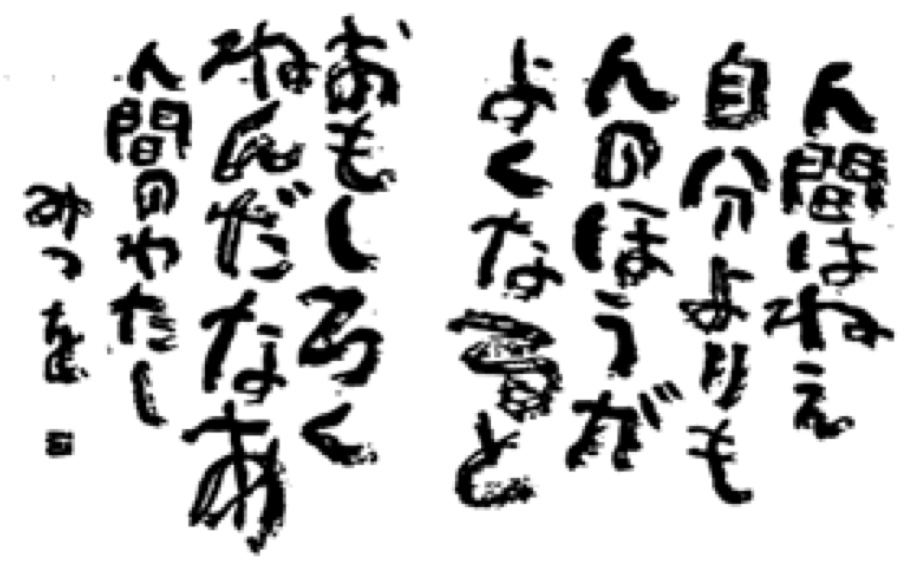 人間はねえ
自分よりも
人のほうが
よくなると
おもしろく
ねんだなあ
人間のわたし
みつを